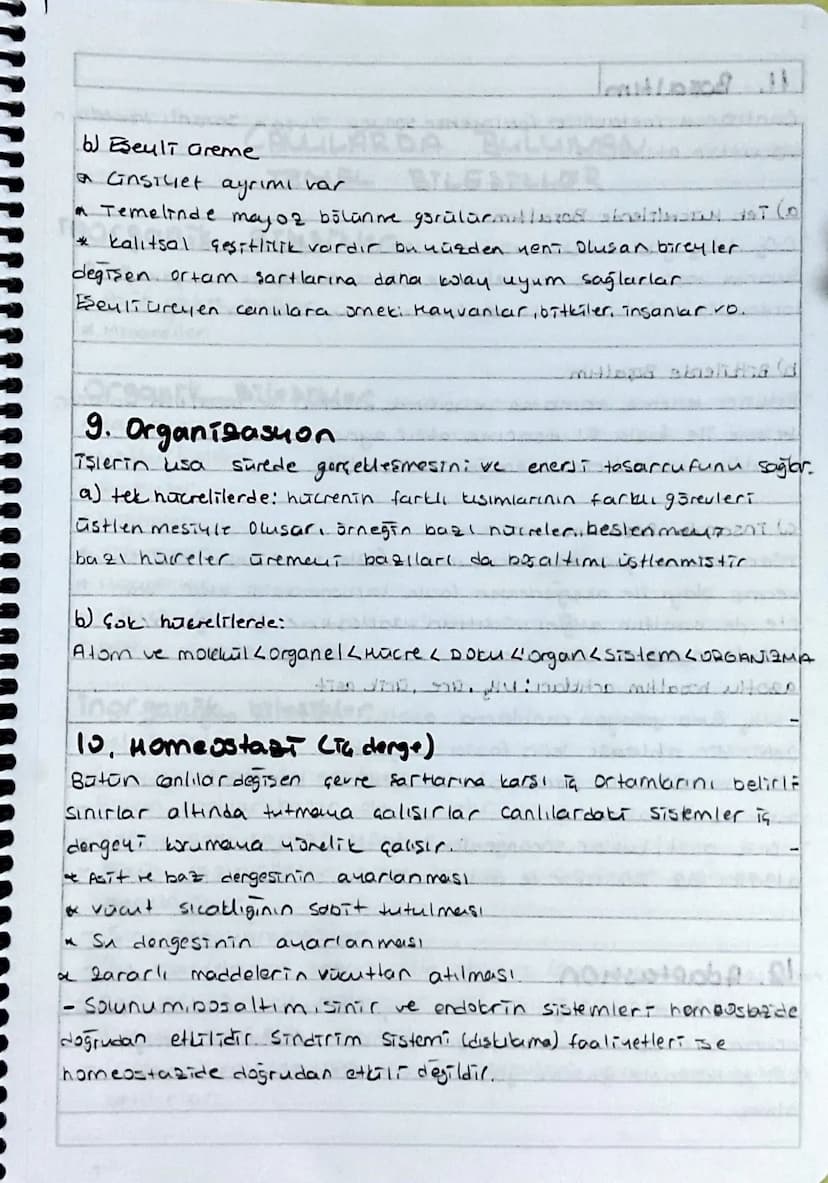 b) Eşeyli üreme
* Cinsiyet ayrımı var
* Temelinde mayoz bölünme görülür
* Kalıtsal çeşitlilik vardır bu yüzden yeni oluşan bireyler
değişen ortam şartlarına daha kolay uyum sağlarlar
Eşeyli üreyen canlılara örnek: Hayvanlar, bitkiler, insanlar vb.
9. Organizasyon
işlerin kısa sürede gerçekleşmesini ve enerji tasarrufunu sağlar.
a) tek hücrelilerde: hücrenin farklı kısımlarının farklı görevleri
üstlenmesiyle oluşur. örneğin bazı hücreler beslenmeyi
bazı hücreler üremeyi bazıları da boşaltımı üstlenmiştir
b) Çok hücrelilerde:
Atom ve molekül < organel < Hücre < Doku < organ < Sistem < ORGANİZMA
10. Homeostazi (iç denge)
Bütün canlılar değişen çevre şartlarına karşı iç ortamlarını belirli
sınırlar altında tutmaya çalışırlar canlılardaki sistemler iç
dengeyi korumaya yönelik çalışır.
* Asit ve baz dengesinin ayarlanması
* vücut sıcaklığının sabit tutulması
* Su dengesinin ayarlanması
* Zararlı maddelerin vücuttan atılması.
- Solunum, boşaltım, sinir ve endokrin sistemleri homeostazide
doğrudan etkilidir. Sindirim sistemi (dışkılama) faaliyetleri ise
homeostazide doğrudan etkili değildir.